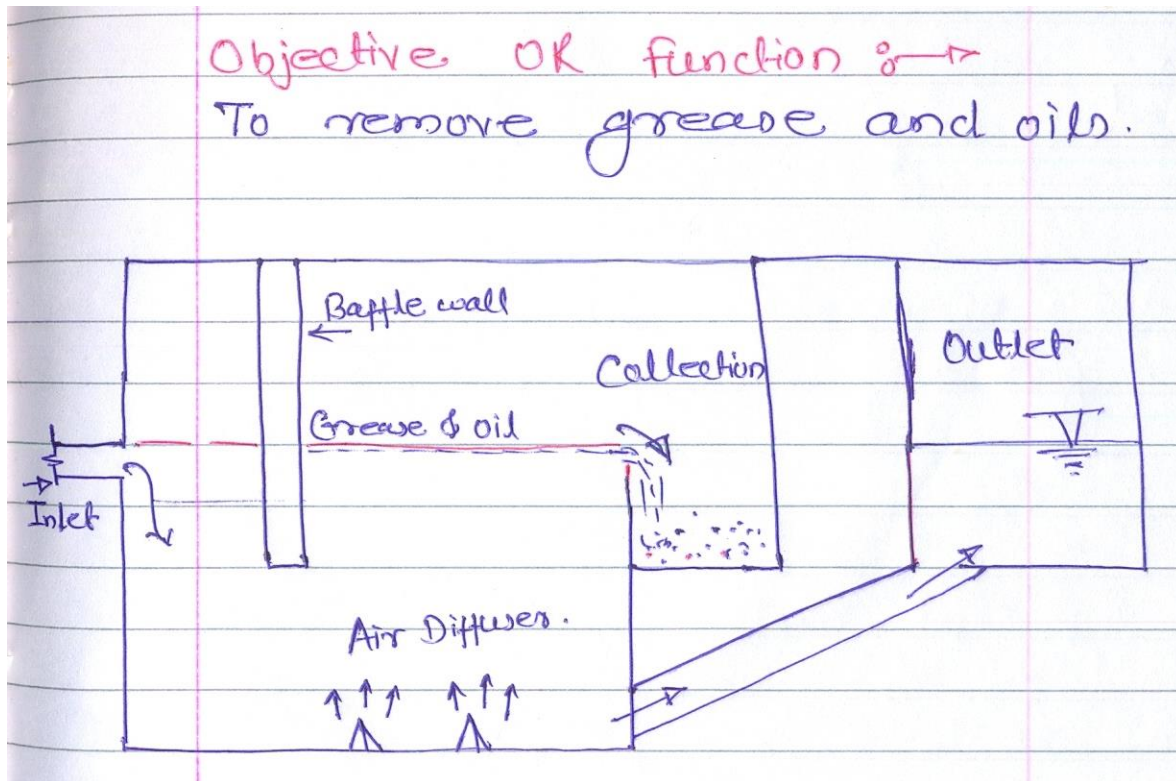 Objective OR function :→
To remove grease and oils.
Baffle wall
Collection
Outlet
Grease & oil
Inlet
Air Diffuser.